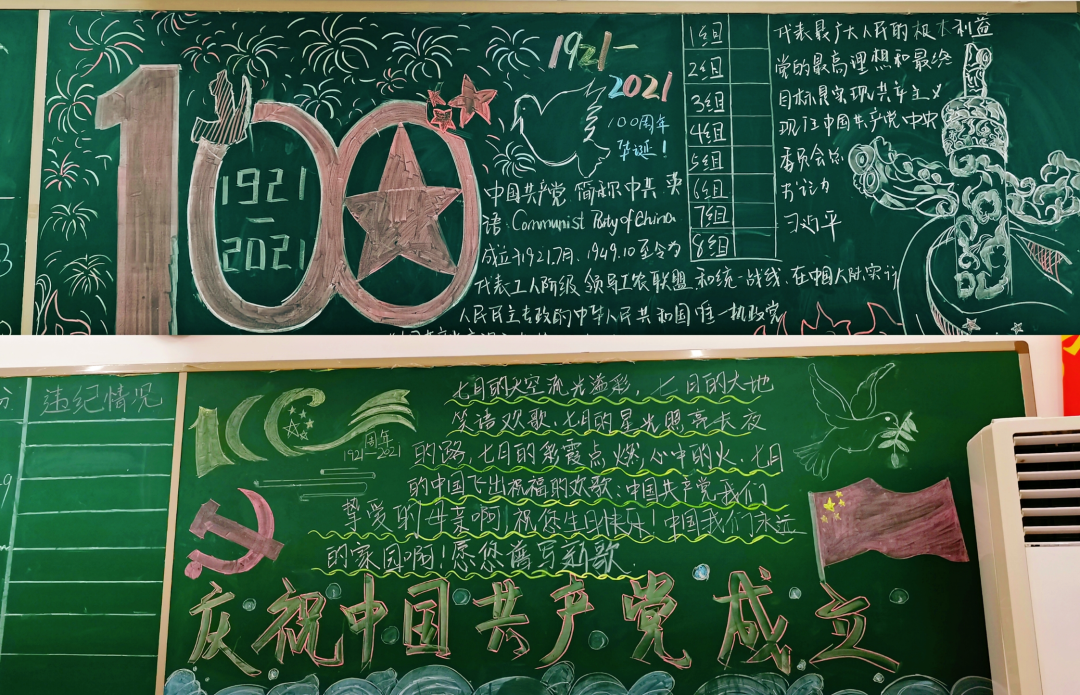 100
1921
—
2021
1921—
2021
100周年
华诞!
中国共产党 简称中共 英
语.Communist Party of China
成立于1921.7月、1949.10至今为
代表工人阶级 领导工农联盟和统一战线.在中国大陆实计
人民民主专政的中华人民共和国唯一执政党
1组
2组
3组
4组
5组
6组
7组
8组
代表最广大人民的根本利益
党的最高理想和最终
目标是实现共产主义
现任中国共产党中央
委员会总
书记为
习近平
违纪情况
100
周年
1921—2021
七月的天空流光溢彩,七月的大地
笑语欢歌、七月的星光照亮長夜
的路,七月的彩霞点燃,心中的火.七月
的中国飞出祝福的欢歌:中国共产党我们
挚爱的母亲啊!祝您生日快乐!中国我们永远
的家园啊!愿您谱写新歌.
庆祝中国共产党成立